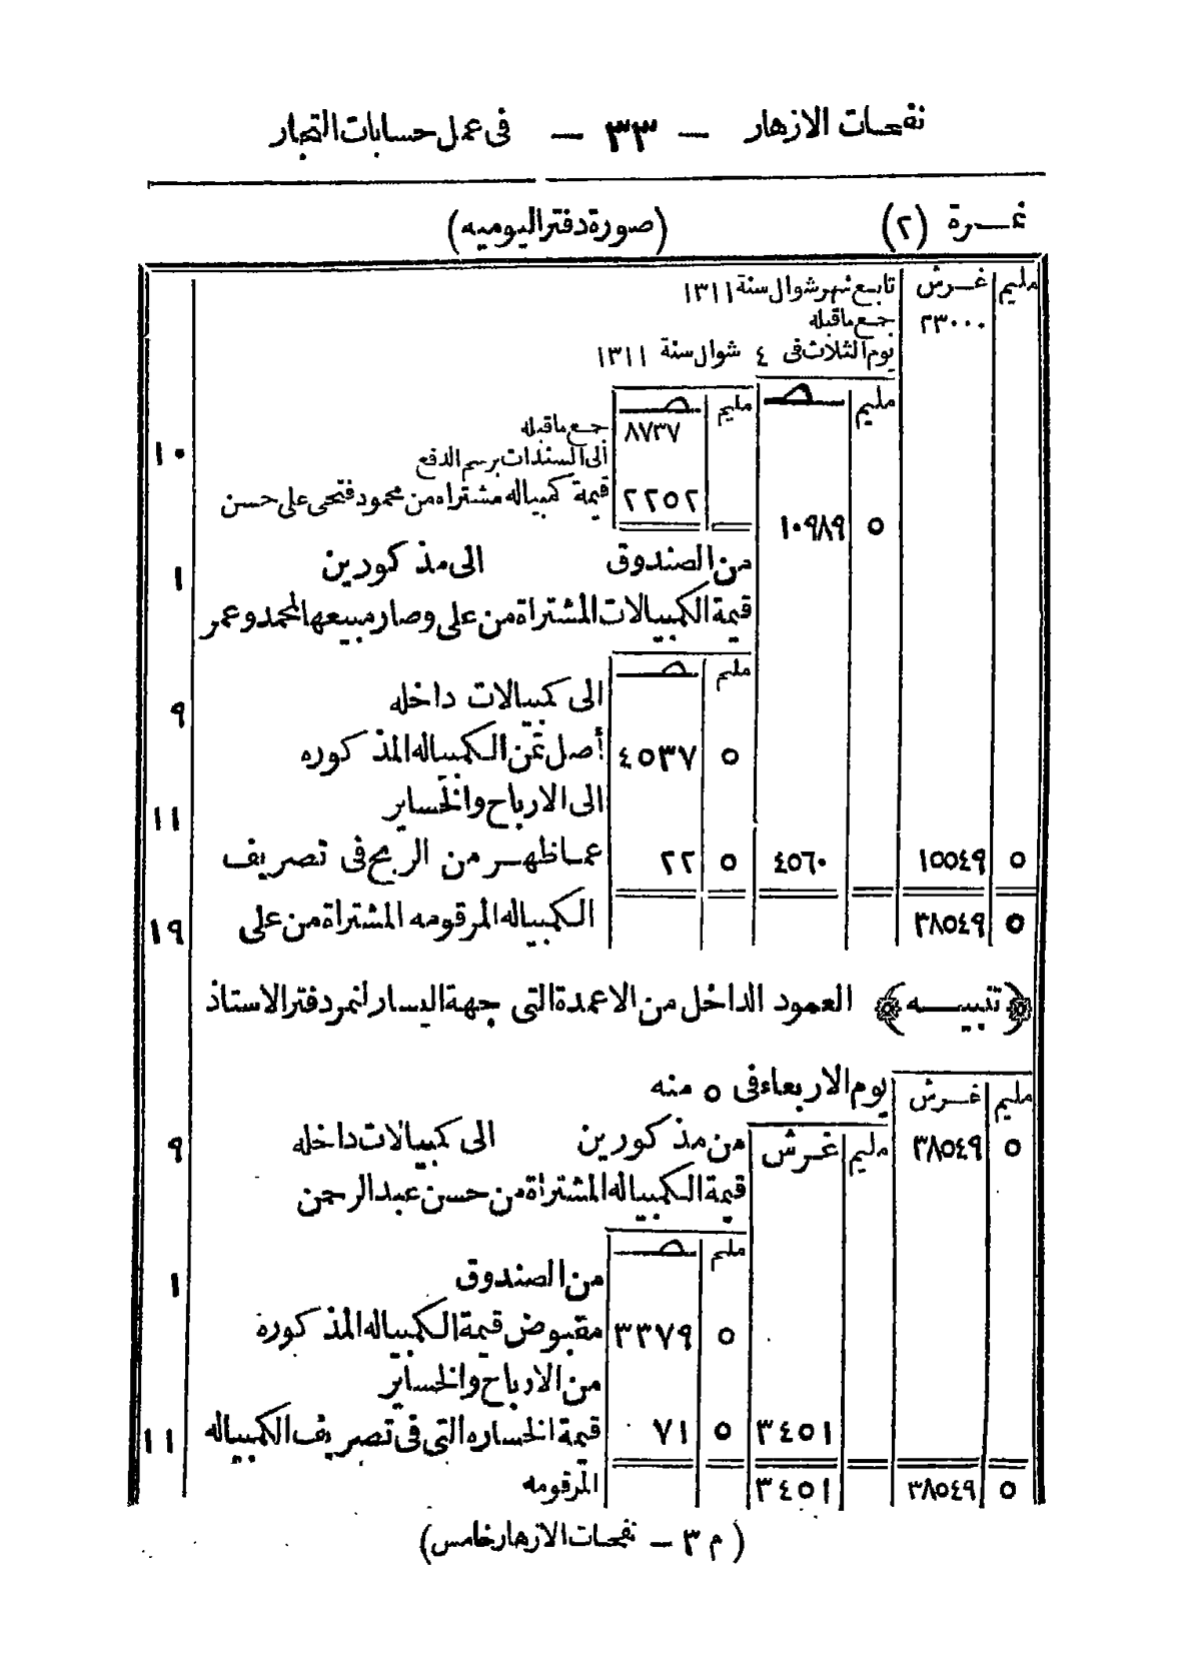 نفحات الازهار - ٣٣ - فى عمل حسابات التجار
نمرة (٢) (صورة دفتر اليوميه)
مليم غرش تابع شهر شوال سنة ١٣١١
٢٣٠٠٠ جمع ماقبله
يوم الثلاث فى ٤ شوال سنة ١٣١١
مليم صـ مليم صـ
٨٧٣٧ جمع ماقبله
١٠ الى السندات برسم الدفع
٢٢٥٢ قيمة كمبياله مشتراه من محمود فتحى على حسن
٥ ١٠٩٨٩
من الصندوق الى مذكورين ١
قيمة الكمبيالات المشتراة من على وصار مبيعها لمحمد وعمر
مليم صـ
الى كمبيالات داخله ٩
٥ ٤٥٣٧ أصل ثمن الكمبياله المذكوره
الى الارباح والخساير ١١
٥ ١٥٥٤٩ ٤٥٦٠ ٥ ٢٢ عما ظهر من الربح فى تصريف
٥ ٣٨٥٤٩ الكمبياله المرقومه المشتراة من على ١٩
(تنبيه) العمود الداخل من الاعمدة التى جهة اليسار لنمر دفتر الاستاذ
مليم غرش يوم الاربعاء فى ٥ منه
٥ ٣٨٥٤٩ مليم غرش من مذكورين الى كمبيالات داخله ٩
قيمة الكمبياله المشتراة من حسن عبد الرحمن
مليم صـ
من الصندوق ١
٥ ٣٣٧٩ مقبوض قيمة الكمبياله المذكوره
من الارباح والخساير
٣٤٥١ ٥ ٧١ قيمة الخساره التى فى تصريف الكمبياله ١١
٥ ٣٨٥٤٩ ٣٤٥١ المرقومه
(م ٣ - نفحات الازهار خامس)